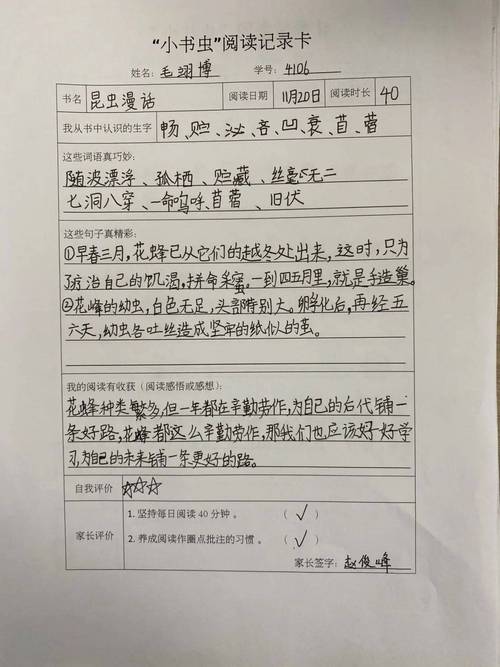 “小书虫”阅读记录卡
姓名：毛翊博 学号：4106
书名 昆虫漫话 阅读日期 11月20日 阅读时长 40
我从书中认识的生字 畅、贮、泌、吝、凹、衰、苜、蓿
这些词语真巧妙：
随波漂浮、孤栖、贮藏、丝毫无二
七洞八穿、一命呜呼、苜蓿、旧伏
这些句子真精彩：
①早春三月，花蜂已从它们的越冬处出来，这时，只为
了疗治自己的饥渴，拼命采蜜。一到四五月里，就是手造巢。
②花蜂的幼虫，白色无足，头部特别大。孵化后，再经五
六天，幼虫各吐丝造成坚牢的纸似的茧。
我的阅读有收获（阅读感悟或感想）：
花蜂种类繁多，但一年都在辛勤劳作，为自己的后代铺一
条好路，花蜂都这么辛勤劳作，那我们也应该好好学
习，为自己的未来铺一条更好的路。
自我评价 ☆☆☆
家长评价
1. 坚持每日阅读 40 分钟。 （ √ ）
2. 养成阅读作圈点批注的习惯。 （ √ ）
家长签字：赵俊峰